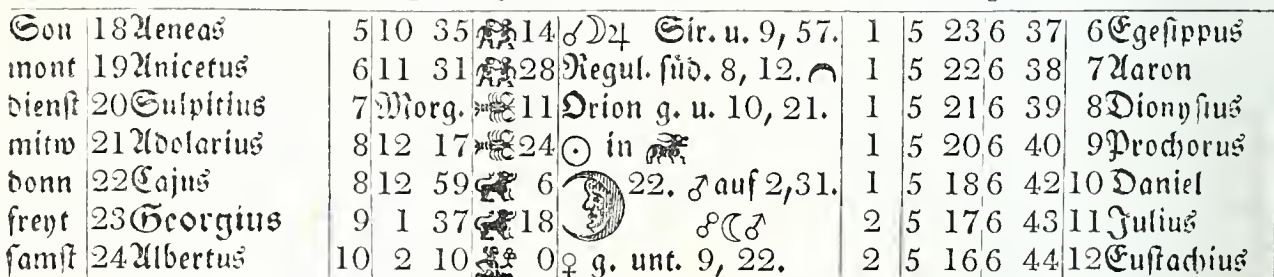 Son 18 Aeneas 5 10 35 14 ☌☽♃ Sir. u. 9, 57. 1 5 23 6 37 6 Egesippus
mont 19 Anicetus 6 11 31 28 Regul. süd. 8, 12. 1 5 22 6 38 7 Aaron
dienst 20 Sulpitius 7 Morg. 11 Orion g. u. 10, 21. 1 5 21 6 39 8 Dionysius
mitw 21 Adolarius 8 12 17 24 ☉ in 1 5 20 6 40 9 Prochorus
donn 22 Cajus 8 12 59 6 22. ♂ auf 2,31. 1 5 18 6 42 10 Daniel
freyt 23 Georgius 9 1 37 18 ☍☾♂ 2 5 17 6 43 11 Julius
samst 24 Albertus 10 2 10 0 ♀ g. unt. 9, 22. 2 5 16 6 44 12 Eustachius